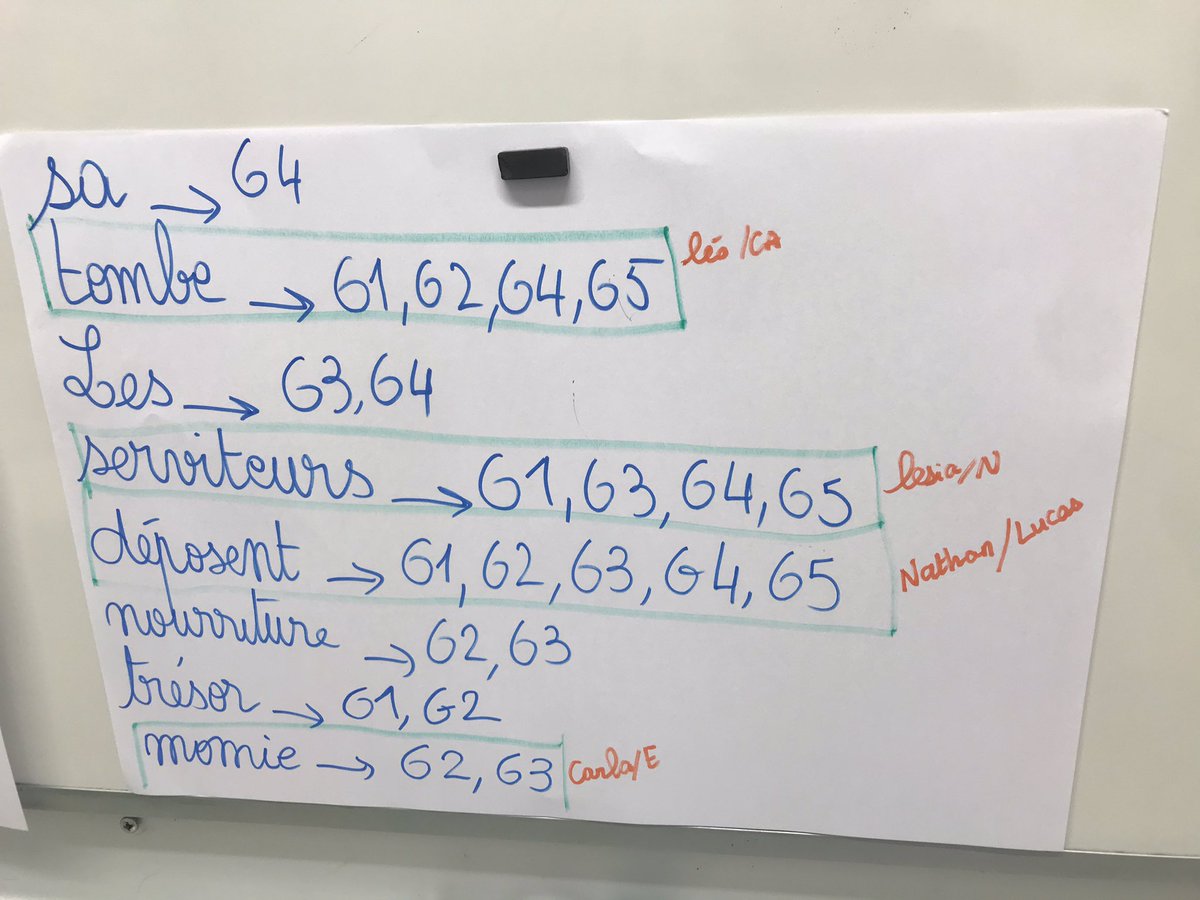 sa → G4
tombe → G1, G2, G4, G5 léo/CA
Les → G3, G4
serviteurs → G1, G3, G4, G5 lesia/N
déposent → G1, G2, G3, G4, G5 Nathan/Lucas
nourriture → G2, G3
trésor → G1, G2
momie → G2, G3 Carla/E